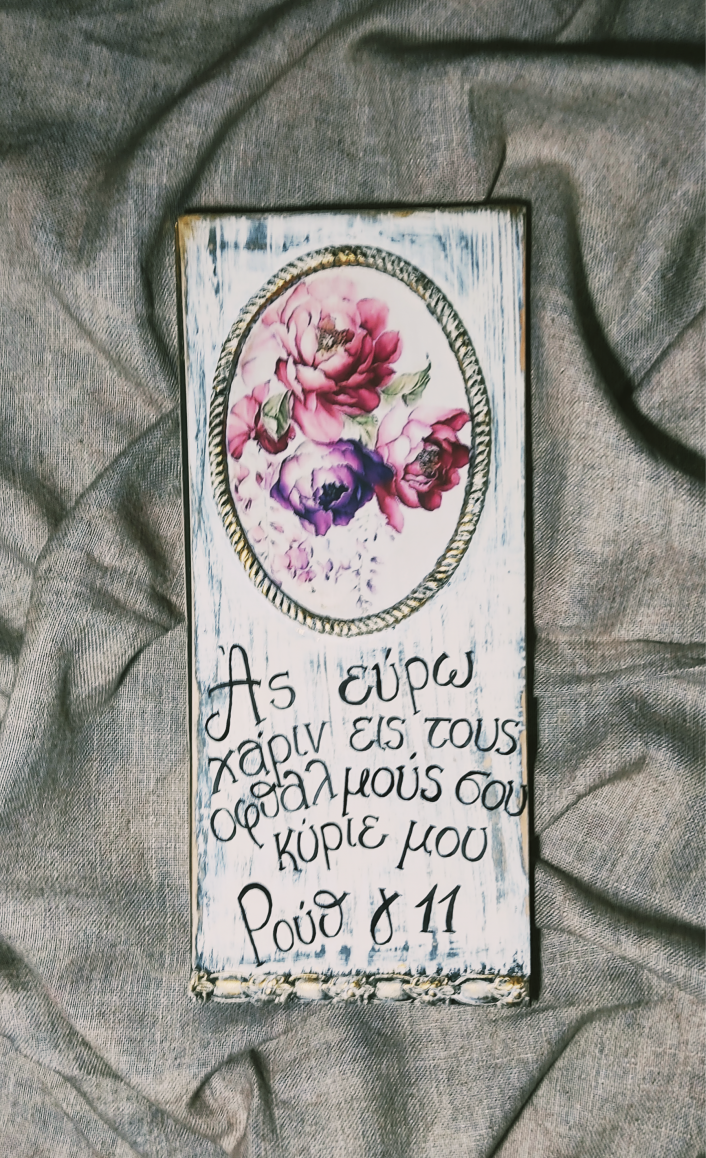 Ἀς εύρω
χάριν εις τους
οφθαλμούς σου
κύριε μου
Ρούθ γ 11